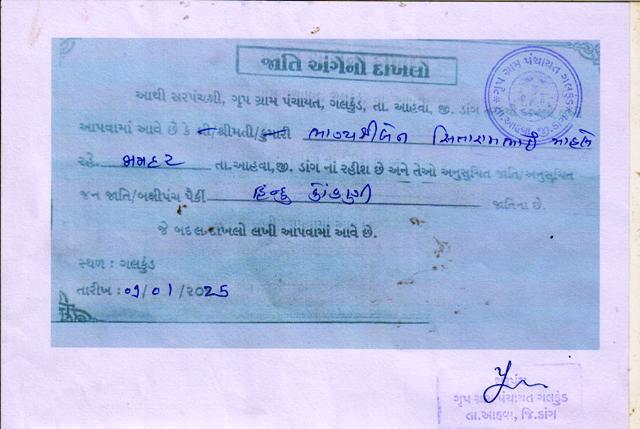 જાતિ અંગેનો દાખલો
ગૃપ ગ્રામ પંચાયત ગલકુંડ
આથી સરપંચશ્રી, ગૃપ ગ્રામ પંચાયત, ગલકુંડ, તા. આહવા, જી. ડાંગ
આપવામાં આવે છે કે શ્રી/શ્રીમતી/કુમારી ભાગ્યશ્રીબેન સિતારામભાઈ માહલે
રહે. તા.આહવા,જી. ડાંગ નાં રહીશ છે અને તેઓ અનુસુચિત જાતિ/અનુસુચિત
જન જાતિ/બક્ષીપંચ પૈકી હિન્દુ કોંકણી જાતિના છે.
જે બદલ દાખલો લખી આપવામાં આવે છે.
સ્થળ : ગલકુંડ
તારીખ : ૦૧/૦૧/૨૦25
સરપંચ
ગૃપ ગ્રામ પંચાયત ગલકુંડ
તા.આહવા, જિ.ડાંગ